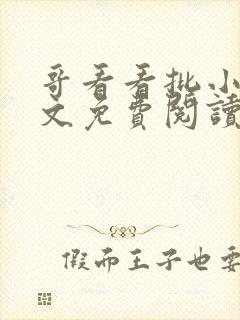 哥看看批小
文免費閱讀
假而王子也要